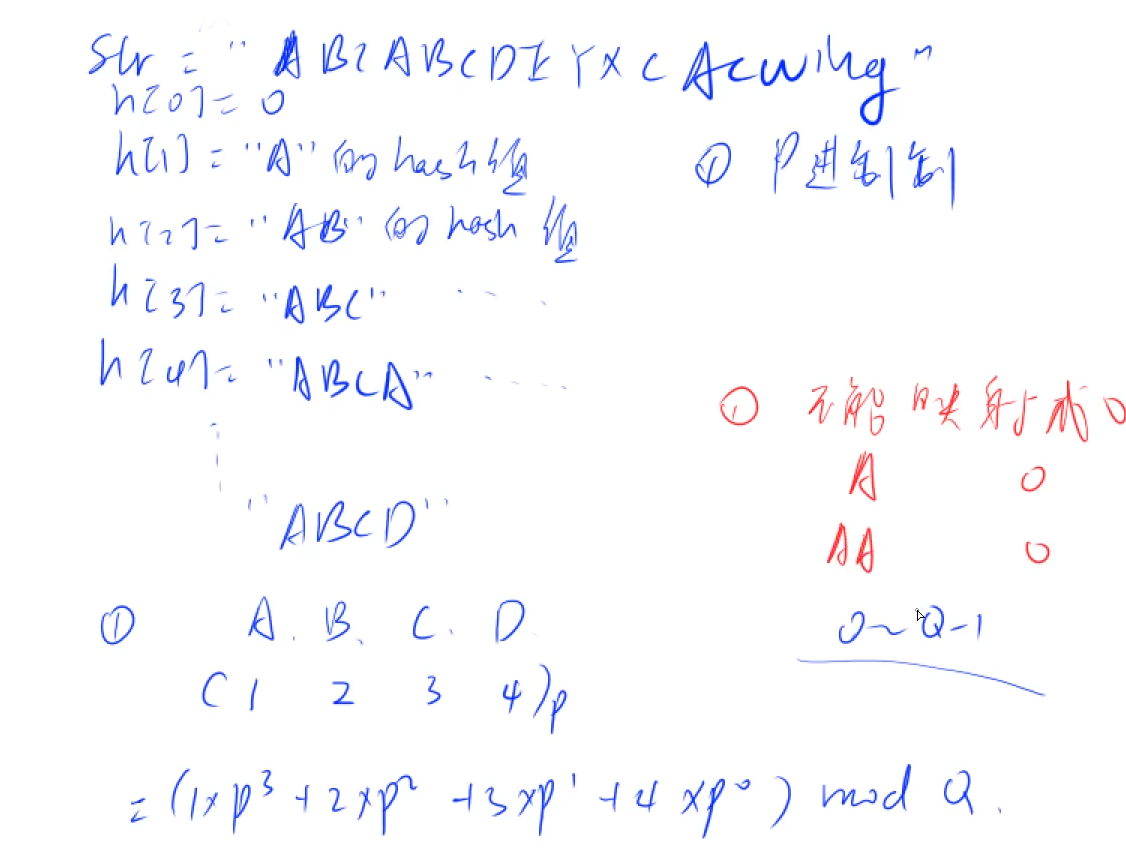 Str = "ABCABCDEYXCAcwing"
h[0] = 0
h[1] = "A" 的 hash 值
① P进制制
h[2] = "AB" 的 hash 值
h[3] = "ABC" ....
h[4] = "ABCA" .....
① 不能映射成0
A 0
AA 0
"ABCD"
① A. B. C. D.
0~Q-1
(1 2 3 4)p
= (1×p³ + 2×p² + 3×p¹ + 4×p⁰) mod Q.